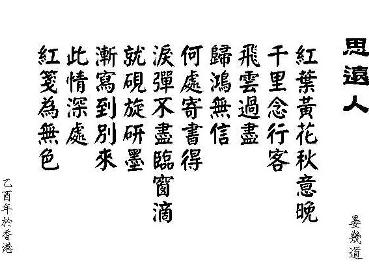 思遠人
紅葉黃花秋意晚
千里念行客
飛雲過盡
歸鴻無信
何處寄書得
淚彈不盡臨窗滴
就硯旋研墨
漸寫到別來
此情深處
紅箋為無色
晏幾道
乙酉年於香港